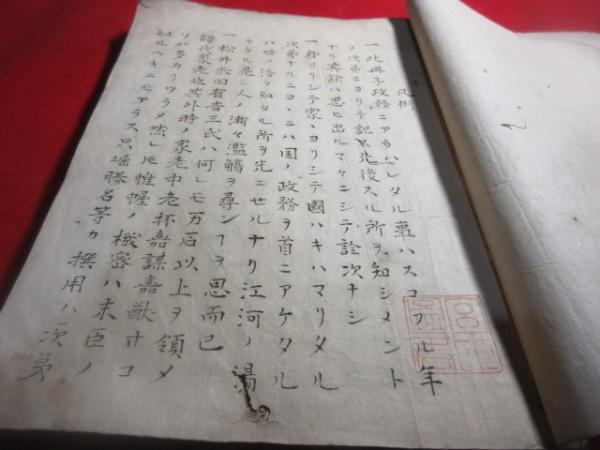 凡例
一此冊子政務ニアツカハレタル事ハスコフル年
ノ次第ニヨリテ記シ先後スル所ヲ知シメント
ナリ其餘ハ思ヒ出ルマヽニシテ詮次ナシ
一郡ヨリシテ家、ヨリシテ國ハキハマリタル
次第ナルニコヽニハ国ノ政務ヲ首ニアケタル
ハ世ノ洽ク知タル所ヲ先ニセルナリ江河ノ湯
タル是ニ人ノ漸々濫觴ヲ尋ンヿヲ思而已
一松井米田有吉三氏ハ何レモ万石以上ヲ領メ
譜代家老也其外時ノ家老中老杯嘉謀嘉猷サコ
ソハ多カリツラメ然レ𪜈帷幄ノ機密ハ末臣ノ
知ルヘキニモアラス只堀勝名等カ撰用ハ次第